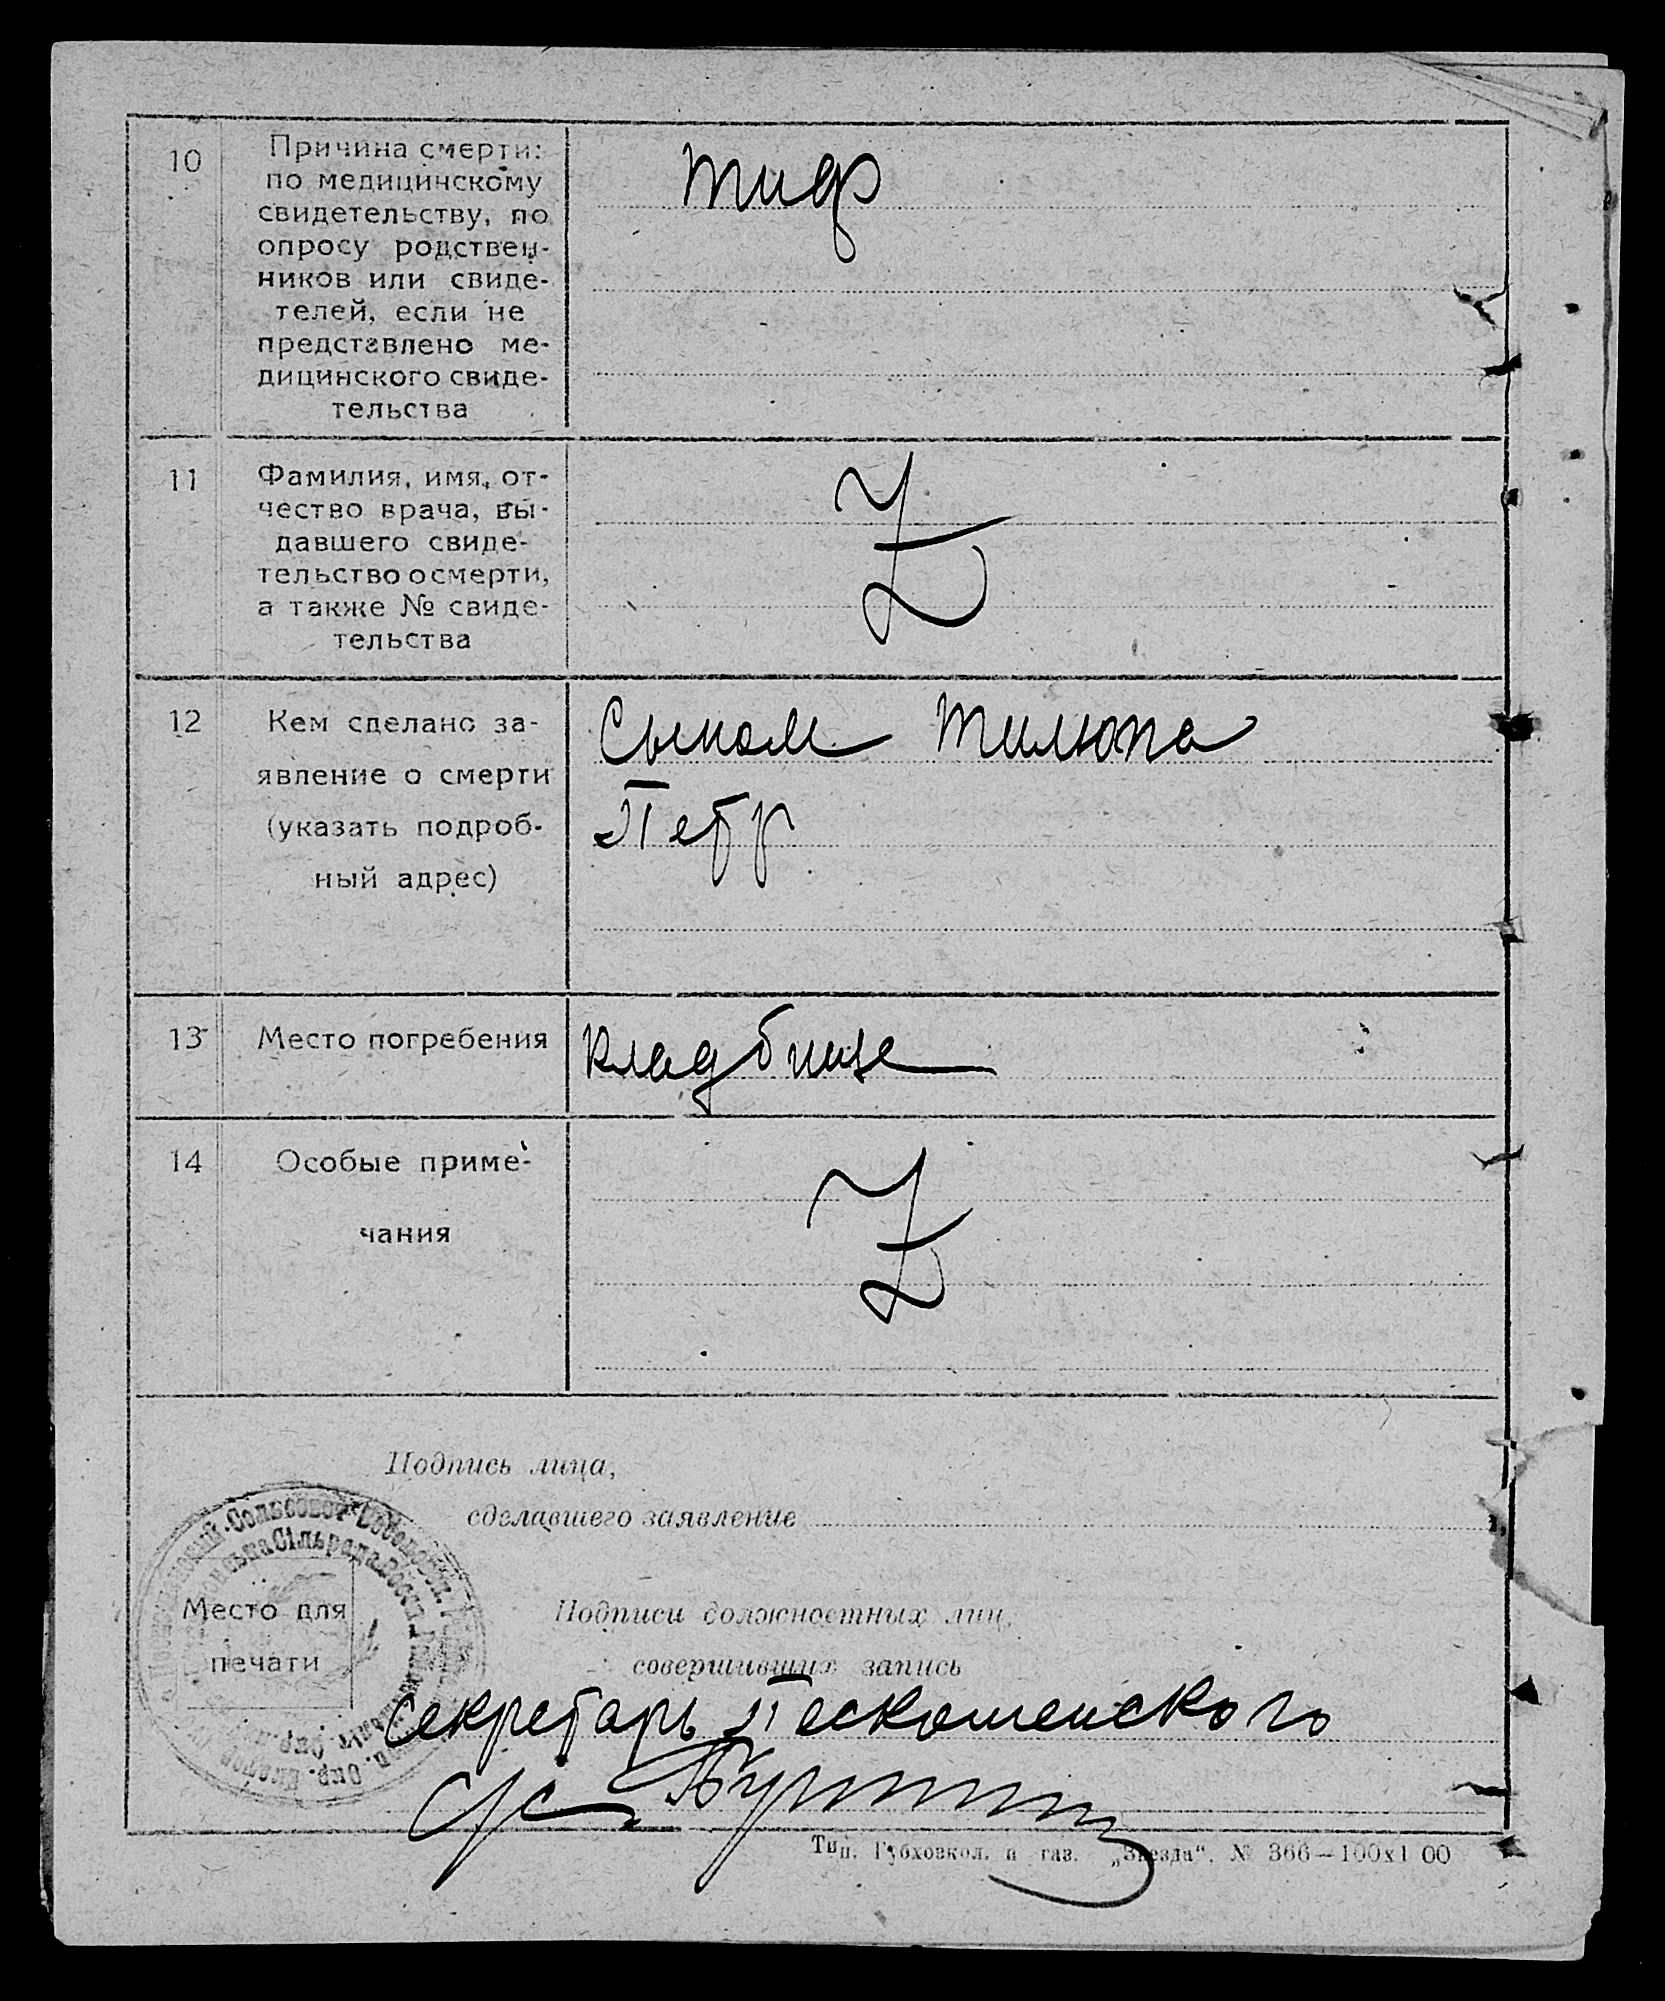 10
Причина смерти:
по медицинскому
свидетельству, по
опросу родствен-
ников или свиде-
телей, если не
представлено ме-
дицинского свиде-
тельства
тиф
11
Фамилия, имя, от-
чество врача, вы-
давшего свиде-
тельство о смерти,
а также № свиде-
тельства
Z
12
Кем сделано за-
явление о смерти
(указать подроб-
ный адрес)
Сыном Тилюпа
Петр
13
Место погребения
кладбище
14
Особые приме-
чания
Z
Подпись лица,
сделавшего заявление
Сельсовет
Сільрада
Место для
печати
Подписи должностных лиц,
совершивших запись
секретарь Пескошенского
Тип. Губхозкол. и газ. „Звезда“. № 366—100х1 00